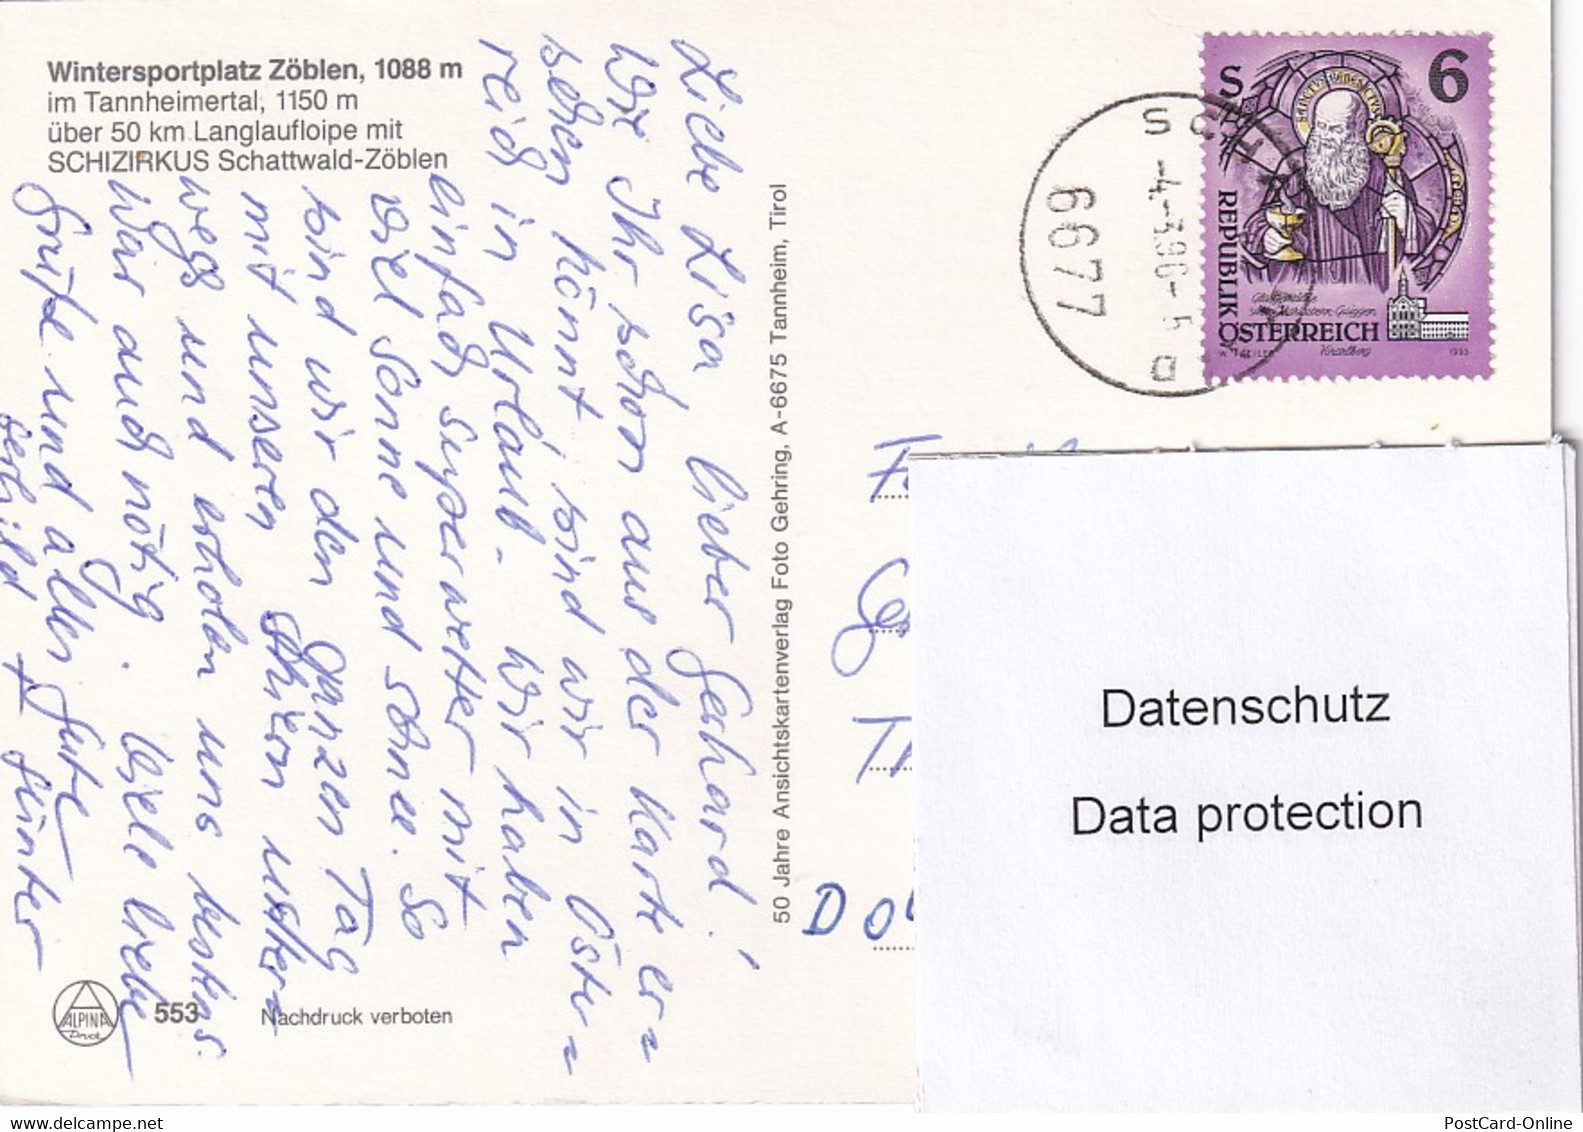 Wintersportplatz Zöblen, 1088 m
im Tannheimertal, 1150 m
über 50 km Langlaufloipe mit
SCHIZIRKUS Schattwald-Zöblen
Liebe Lisa, lieber Gerhard!
Wie Ihr schon aus der Karte er=
sehen könnt, sind wir in Öster=
reich in Urlaub. Wir haben
einfach Superwetter mit
viel Sonne und Schnee. So
sind wir den ganzen Tag
mit unseren Schiern unter=
wegs und erholen uns bestens.
War auch nötig. Viele liebe
Grüße und alles Gute
Gerhild + Günter
50 Jahre Ansichtskartenverlag Foto Gehring, A-6675 Tannheim, Tirol
ALPINA
Druck
553
Nachdruck verboten
6677
-4.-3.96-5
S 6
SANCTUS BENEDICTUS
REPUBLIK
ÖSTERREICH
Vorarlberg
1993
Datenschutz
Data protection
PostCard-Online